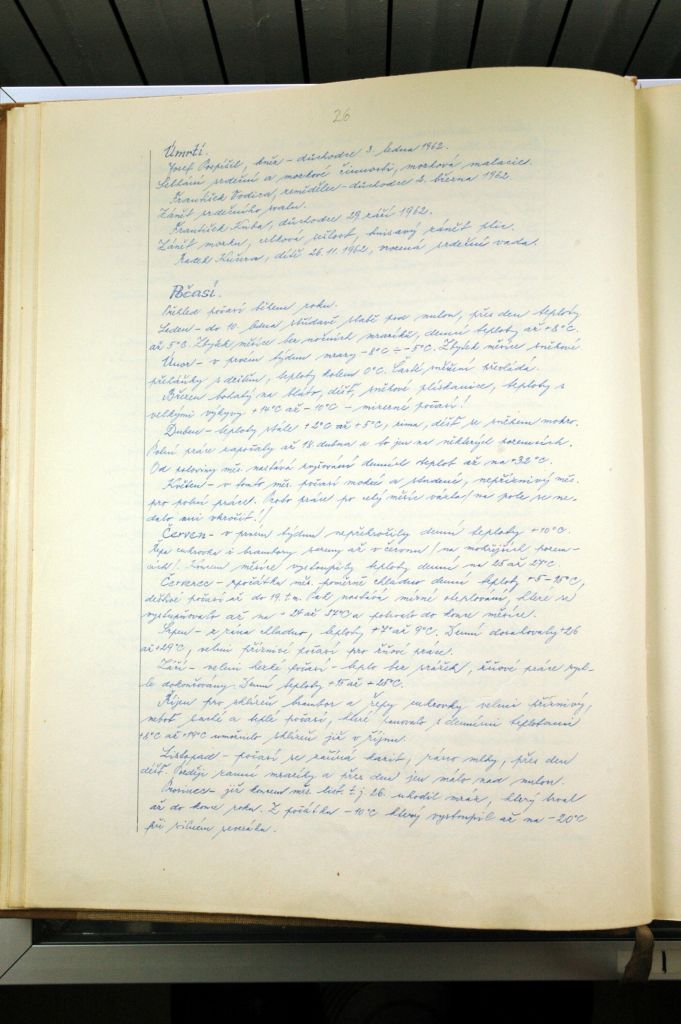 26
Úmrtí.
Josef Pospíšil, kněz - důchodce 3. ledna 1962.
Selhání srdeční a mozkové činnosti, mozková malacie.
František Vodica, zemědělec - důchodce 2. března 1962
Zánět srdečního svalu.
František Kuba, důchodce 29. září 1962.
Zánět mozku, celková sešlost, hnisavý zánět plic.
Radek Kučera, dítě 26.11.1962, vrozená srdeční vada.
Počasí.
Přehled počasí během roku.
Leden - do 10. ledna střídavě slabě pod nulou, přes den teploty
až 5°C. Zbytek měsíce bez nočních mrazíků, denní teploty až +8°C.
Únor - v prvém týdnu mrazy -8°C ÷ -5°C. Zbytek měsíce sněhové
přeháňky s deštěm, teploty kolem 0°C. Časté sněžení převládá.
Březen bohatý na bláto, déšť, sněhové plískanice, teploty s
velkými výkyvy +14°C až -10°C - mizerné počasí!
Duben - teploty stále +2°C až +5°C, zima, déšť se sněhem mokro.
Polní práce započaly až 18. dubna a to jen na některých pozemcích.
Od poloviny měs. nastává zvyšování denních teplot až na +32°C.
Květen - v tomto měs. počasí mokré a studené, nepříznivý měs.
pro polní práce. Proto práce po celý měsíc vázla/ na pole se ne-
dalo ani vkročit!/
Červen - v prvém týdnu nepřekročily denní teploty +10°C.
Řepa cukrovka i brambory sázeny až v červnu/ na mokřejších pozem-
cích/. Koncem měsíce vystoupily teploty denní na 25 až 27°C.
Červenec - zpočátku měs. poměrně chladno denní teploty +5-15°C,
deštivé počasí až do 19. t.m. Pak nastává mírné oteplování, které se
vystupňovalo až na +24 až 37°C a potrvalo do konce měsíce.
Srpen - z rána chladno, teploty +7° až 9°C. Denní dosahovaly +26
až +29°C, velmi příznivé počasí pro žňové práce.
Září - velmi hezké počasí - teplo bez srážek, žňové práce rych-
le dokončovány. Denní teploty +15 až +25°C.
Říjen pro sklizeň brambor a řepy cukrovky velmi příznivý,
neboť suché a teplé počasí, které panovalo s denními teplotami
18°C až +14°C umožnilo sklizeň již v říjnu.
Listopad - počasí se začíná kazit, ráno mlhy, přes den
déšť. Později ranní mrazíky a přes den jen málo nad nulou.
Prosinec - již koncem měs. list. t.j. 26. uhodil mráz, který trval
až do konce roku. Z počátku -10°C který vystoupil až na -20°C
při silném severáku.
1